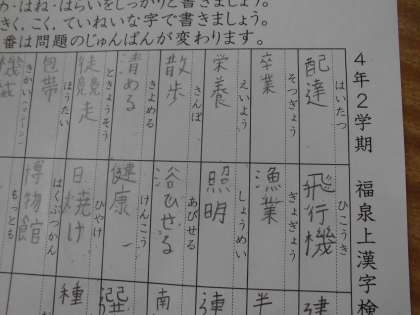 め・はね・はらいをしっかりと書きましょう。
きく、こく、ていねいな字で書きましょう。
番は問題のじゅんばんが変わります。
4年2学期 福泉上漢字検
はいたつ
配達
そつぎょう
卒業
えいよう
栄養
さんぽ
散歩
きよめる
清める
ときょうそう
徒競走
ほうたい
包帯
きかい
機械
ひこうき
飛行機
ぎょぎょう
漁業
しょうめい
照明
あびせる
浴びせる
けんこう
健康
ひやけ
日焼け
はくぶつかん
博物館
もっとも
半
連
南
選
種